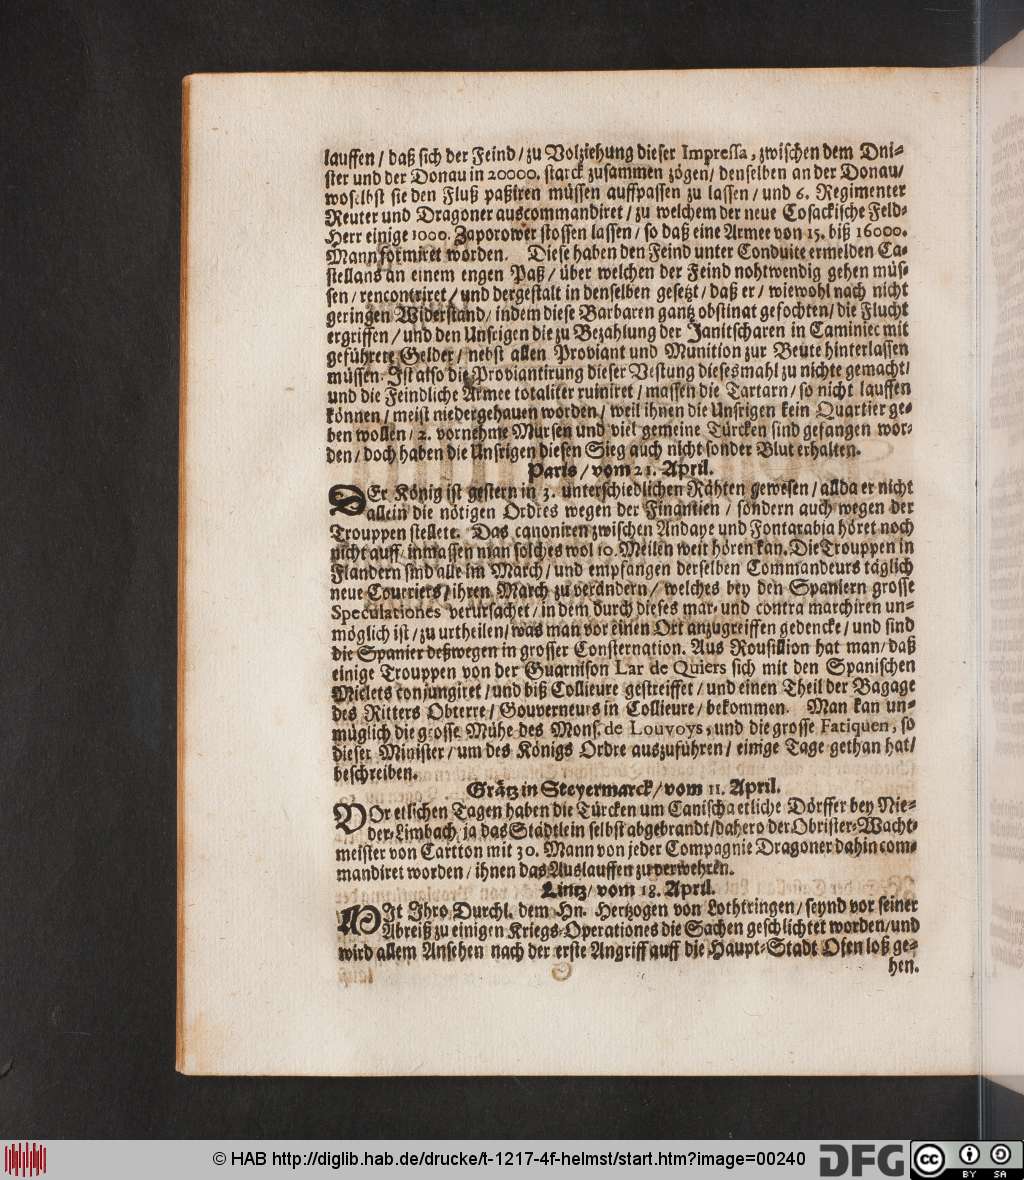 lauffen / daß sich der Feind / zu Volziehung dieser Impressa, zwischen dem Dni-
ster und der Donau in 20000. starck zusammen zögen / denselben an der Donau /
woselbst sie den Fluß paßiren müssen auffpassen zu lassen / und 6. Regimenter
Reuter und Dragoner auscommandiret / zu welchem der neue Cosackische Feld-
Herr einige 1000. Zaporower stossen lassen / so daß eine Armee von 15. biß 16000.
Mann formiret worden. Diese haben den Feind unter Conduite ermelden Ca-
stellans an einem engen Paß / über welchen der Feind nohtwendig gehen müs-
sen / rencontriret / und dergestalt in denselben gesetzt / daß er / wiewohl nach nicht
geringen Widerstand / indem diese Barbaren gantz obstinat gefochten / die Flucht
ergriffen / und den Unsrigen die zu Bezahlung der Janitscharen in Caminiec mit
geführete Gelder / nebst allen Proviant und Munition zur Beute hinterlassen
müssen. Ist also die Proviantirung dieser Vestung diesesmahl zu nichte gemacht /
und die Feindliche Armee totaliter ruiniret / massen die Tartarn / so nicht lauffen
können / meist niedergehauen worden / weil ihnen die Unsrigen kein Quartier ge-
ben wollen / 2. vornehme Mursen und viel gemeine Türcken sind gefangen wor-
den / doch haben die Unsrigen diesen Sieg auch nicht sonder Blut erhalten.
Paris / vom 21. April.
DEr König ist gestern in 3. unterschiedlichen Rähten gewesen / allda er nicht
allein die nötigen Ordres wegen der Finantien / sondern auch wegen der
Trouppen stellete. Das canoniren zwischen Andaye und Fontarabia höret noch
nicht auff / inmassen man solches wol 10. Meilen weit hören kan. Die Trouppen in
Flandern sind alle im March / und empfangen derselben Commandeurs täglich
neue Couriers / ihren March zu verändern / welches bey den Spaniern grosse
Speculationes verursachet / in dem durch dieses mar- und contra marchiren un-
möglich ist / zu urtheilen / was man vor einen Ort anzugreiffen gedencke / und sind
die Spanier deßwegen in grosser Consternation. Aus Rousillion hat man / daß
einige Trouppen von der Guarnison Lar de Quiers sich mit den Spanischen
Miclets conjungiret / und biß Collieure gestreiffet / und einen Theil der Bagage
des Ritters Obterre / Gouverneurs in Collieure / bekommen. Man kan un-
müglich die grosse Mühe des Mons. de Louvoys, und die grosse Fatiquen, so
dieser Minister / um des Königs Ordre auszuführen / einige Tage gethan hat /
beschreiben.
Grätz in Steyermarck / vom 11. April.
VOr etlichen Tagen haben die Türcken um Canischa etliche Dörffer bey Nie-
der-Limbach, ja das Städtlein selbst abgebrandt / dahero der Obrister-Wacht-
meister von Cartton mit 30. Mann von jeder Compagnie Dragoner dahin com-
mandiret worden / ihnen das Auslauffen zu verwehren.
Lintz / vom 18. April.
MIt Ihro Durchl. dem Hn. Hertzogen von Lothtringen / seynd vor seiner
Abreiß zu einigen Kriegs-Operationes die Sachen geschlichtet worden / und
wird allem Ansehen nach der erste Angriff auff die Haupt-Stadt Ofen loß ge-
hen.
© HAB http://diglib.hab.de/drucke/t-1217-4f-helmst/start.htm?image=00240
DFG
cc BY SA